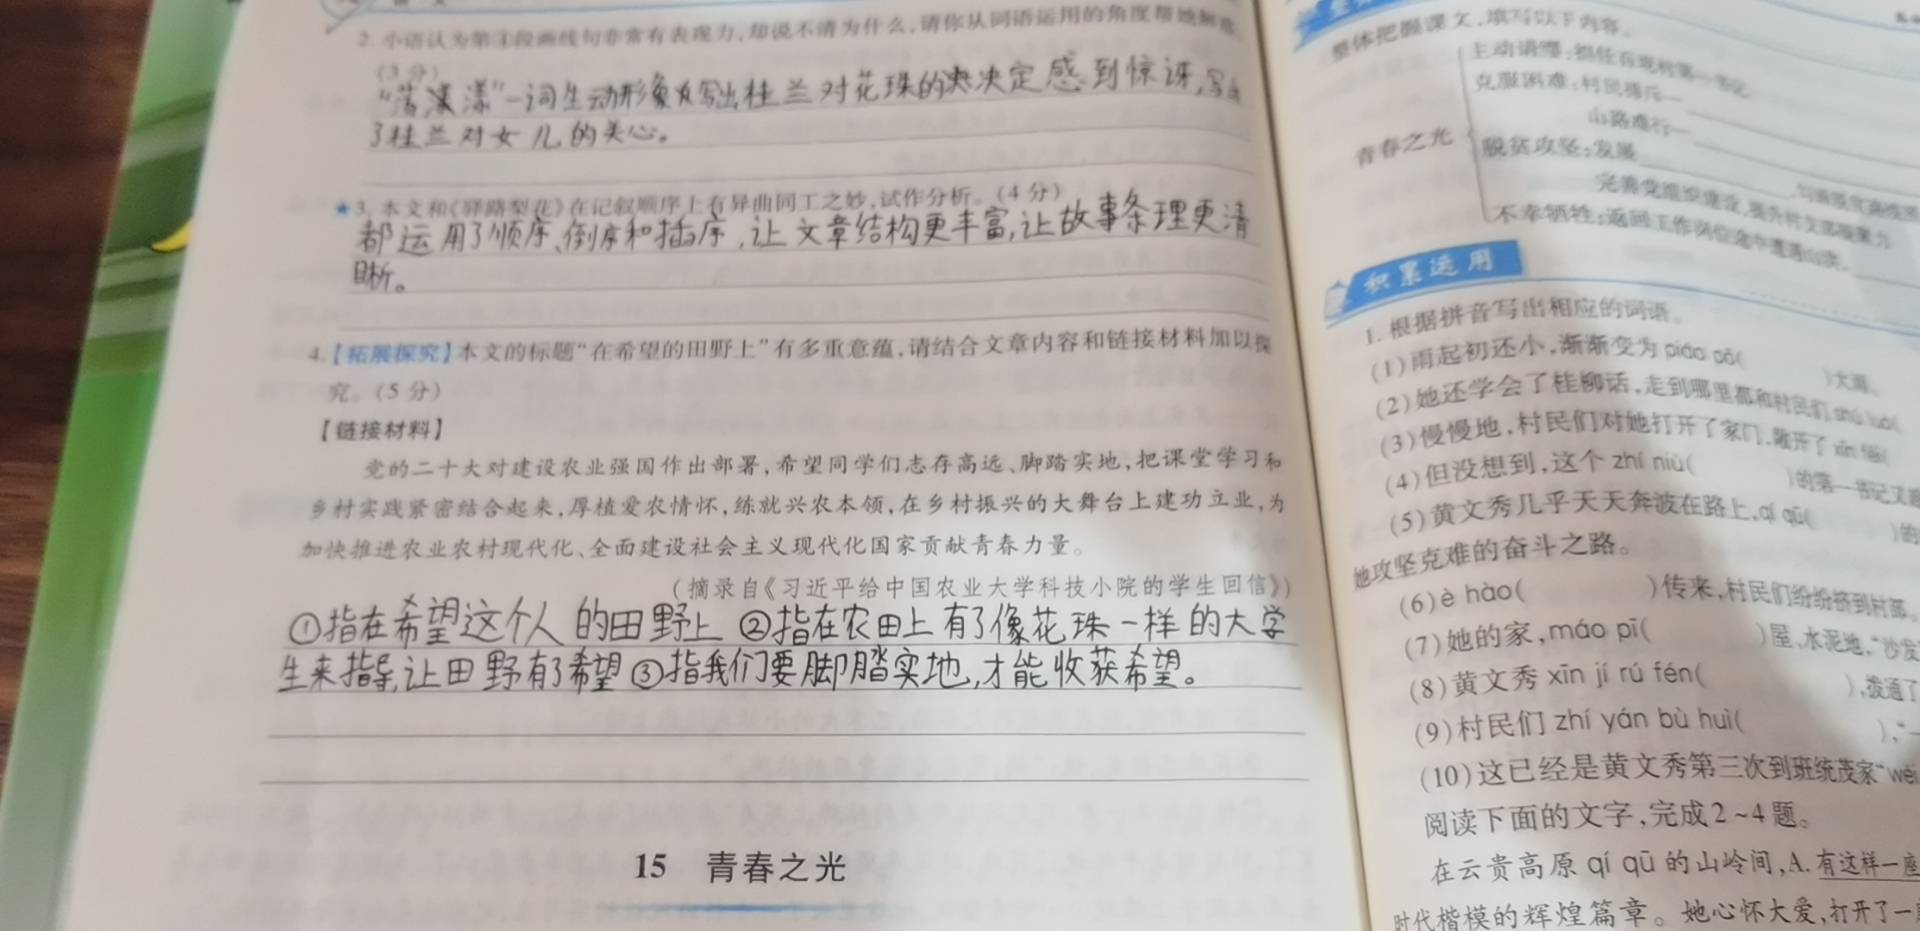 2. 小语认为第④段画线句非常有表现力,却说不清为什么,请你从词语运用的角度帮她解
(3 分)
一词生动形象 写出桂兰对花珠的 决定感到惊讶,写出
了桂兰对女儿的关心。
★3. 本文和《驿路梨花》在记叙顺序上有异曲同工之妙,试作分析。(4 分)
都运用了顺序、倒序和插序,让文章结构更丰富,让故事条理更清
晰。
4.【拓展探究】本文的标题“在希望的田野上”有多重意蕴,请结合文章内容和链接材料加以探
究。(5 分)
【链接材料】
党的二十大对建设农业强国作出部署,希望同学们志存高远、脚踏实地,把课堂学习和
乡村实践紧密结合起来,厚植爱农情怀,练就兴农本领,在乡村振兴的大舞台上建功立业,为
加快推进农业农村现代化、全面建设社会主义现代化国家贡献青春力量。
(摘录自《习近平给中国农业大学科技小院的学生回信》)
①指在希望这个人的田野上 ②指在农田上有了像花珠一样的大学
生来指导,让田野有了希望 ③指我们要脚踏实地,才能收获希望。
15 青春之光
整体把握课文,填写以下内容。
青春之光
主动请缨:担任百坭村第一书记
克服困难:村民排斥—
山路难行—
脱贫攻坚:发展
完善党组织建设,提升村支部凝聚力
不幸牺牲:返回工作岗位途中遭遇山洪
积累运用
1. 根据拼音写出相应的词语。
(1)雨起初还小,渐渐变为 piáo pō( )大雨。
(2)她还学会了桂柳话,走到哪里都和村民们 shú luò(
(3)慢慢地,村民们对她打开了家门,敞开了 xīn fēi(
(4)但没想到,这个 zhí niù( )的第一书记又
(5)黄文秀几乎天天奔波在路上,qí qū( )的
她攻坚克难的奋斗之路。
(6)è hào( )传来,村民们纷纷挤到村部。
(7)她的家,máo pī( )屋、水泥地,“沙发
(8)黄文秀 xīn jí rú fén( ),拨通了
(9)村民们 zhí yán bù huì( ),“
(10)这已经是黄文秀第三次到班统茂家“wéi
阅读下面的文字,完成 2~4 题。
在云贵高原 qí qū 的山岭间,A. 有这样一座
时代楷模的辉煌篇章。她心怀大爱,打开了一